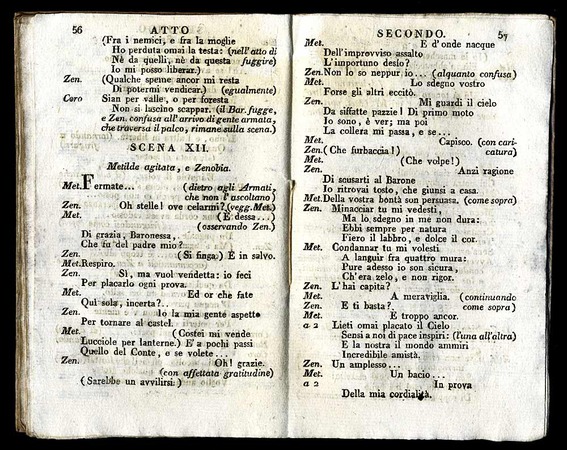 56 ATTO
(Fra i nemici, e fra la moglie
Ho perduta omai la testa: (nell'atto di
Nè da quelli, nè da questa fuggire)
Io mi posso liberar.)
Zen. (Qualche speme ancor mi resta
Di potermi vendicar.) (egualmente)
Coro Sian per valle, o per foresta
Non si lascino scappar. (il Bar. fugge,
e Zen. confusa all'arrivo di gente armata,
che traversa il palco, rimane sulla scena.)
SCENA XII.
Metilde agitata, e Zenobia.
Met. Fermate... (dietro agli Armati,
che non l'ascoltano)
Zen. Oh stelle! ove celarmi? (vegg. Met.)
Met. (È dessa...)
(osservando Zen.)
Di grazia, Baronessa,
Che fu del padre mio?
Zen. (Si finga.) È in salvo.
Met. Respiro.
Zen. Sì, ma vuol vendetta: io feci
Per placarlo ogni prova.
Met. Ed or che fate
Quì sola, incerta?..
Zen. Io la mia gente aspetto
Per tornare al castel.
Met. (Costei mi vende
Lucciole per lanterne.) E' a pochi passi
Quello del Conte, e se volete...
Zen. Oh! grazie.
(con affettata gratitudine)
(Sarebbe un avvilirsi.)
SECONDO. 57
Met. E d'onde nacque
Dell'improvviso assalto
L'importuno desìo?
Zen. Non lo so neppur io... (alquanto confusa)
Met. Lo sdegno vostro
Forse gli altri eccitò.
Zen. Mi guardi il cielo
Da siffatte pazzie! Di primo moto
Io sono, è ver; ma poi
La collera mi passa, e se...
Met. Capisco. (con cari-
Zen. (Che furbaccia!) catura)
Met. (Che volpe!)
Zen. Anzi ragione
Di scusarti al Barone
Io ritrovai tosto, che giunsi a casa.
Met. Della vostra bontà son persuasa. (come sopra)
Zen. Minacciar tu mi vedesti,
Ma lo sdegno in me non dura:
Ebbi sempre per natura
Fiero il labbro, e dolce il cor.
Met. Condannar tu mi volesti
A languir fra quattro mura:
Pure adesso io son sicura,
Ch'era zelo, e non rigor.
Zen. L'hai capita?
Met. A meraviglia. (continuando
Zen. E ti basta?. come sopra)
Met. È troppo ancor.
a 2 Lieti omai placato il Cielo
Sensi a noi di pace inspiri: (l'una all'altra)
E la nostra il mondo ammiri
Incredibile amistà.
Zen. Un amplesso...
Met. Un bacio...
a 2 In prova
Della mia cordialità.